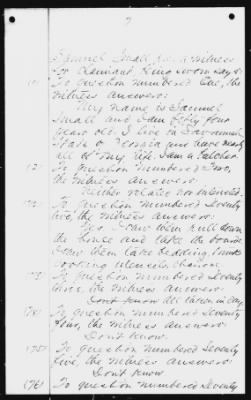 7
Samuel Small for a witness
for Claimant being sworn says:
(1) To question numbered One, the
witness answers:
My name is Samuel
Small and I am fifty four
years old. I live in Savannah
State of Georgia and have nearly
all of my life. I am a butcher.
(2) To question numbered Two,
the witness answers:
Neither related nor interested.
To question numbered Seventy
two, the witness answers:
Yes. I saw them pull down
the house and take the boards
I saw them take bedding,
cooking utensils, chairs
To question numbered Seventy
three, the witness answers:
Dont know all taken in day.
(74) To question numbered Seventy
four, the witness answers:
Dont know.
(75) To question numbered Seventy
five, the witness answers:
Dont know
(76) To question numbered Seventy